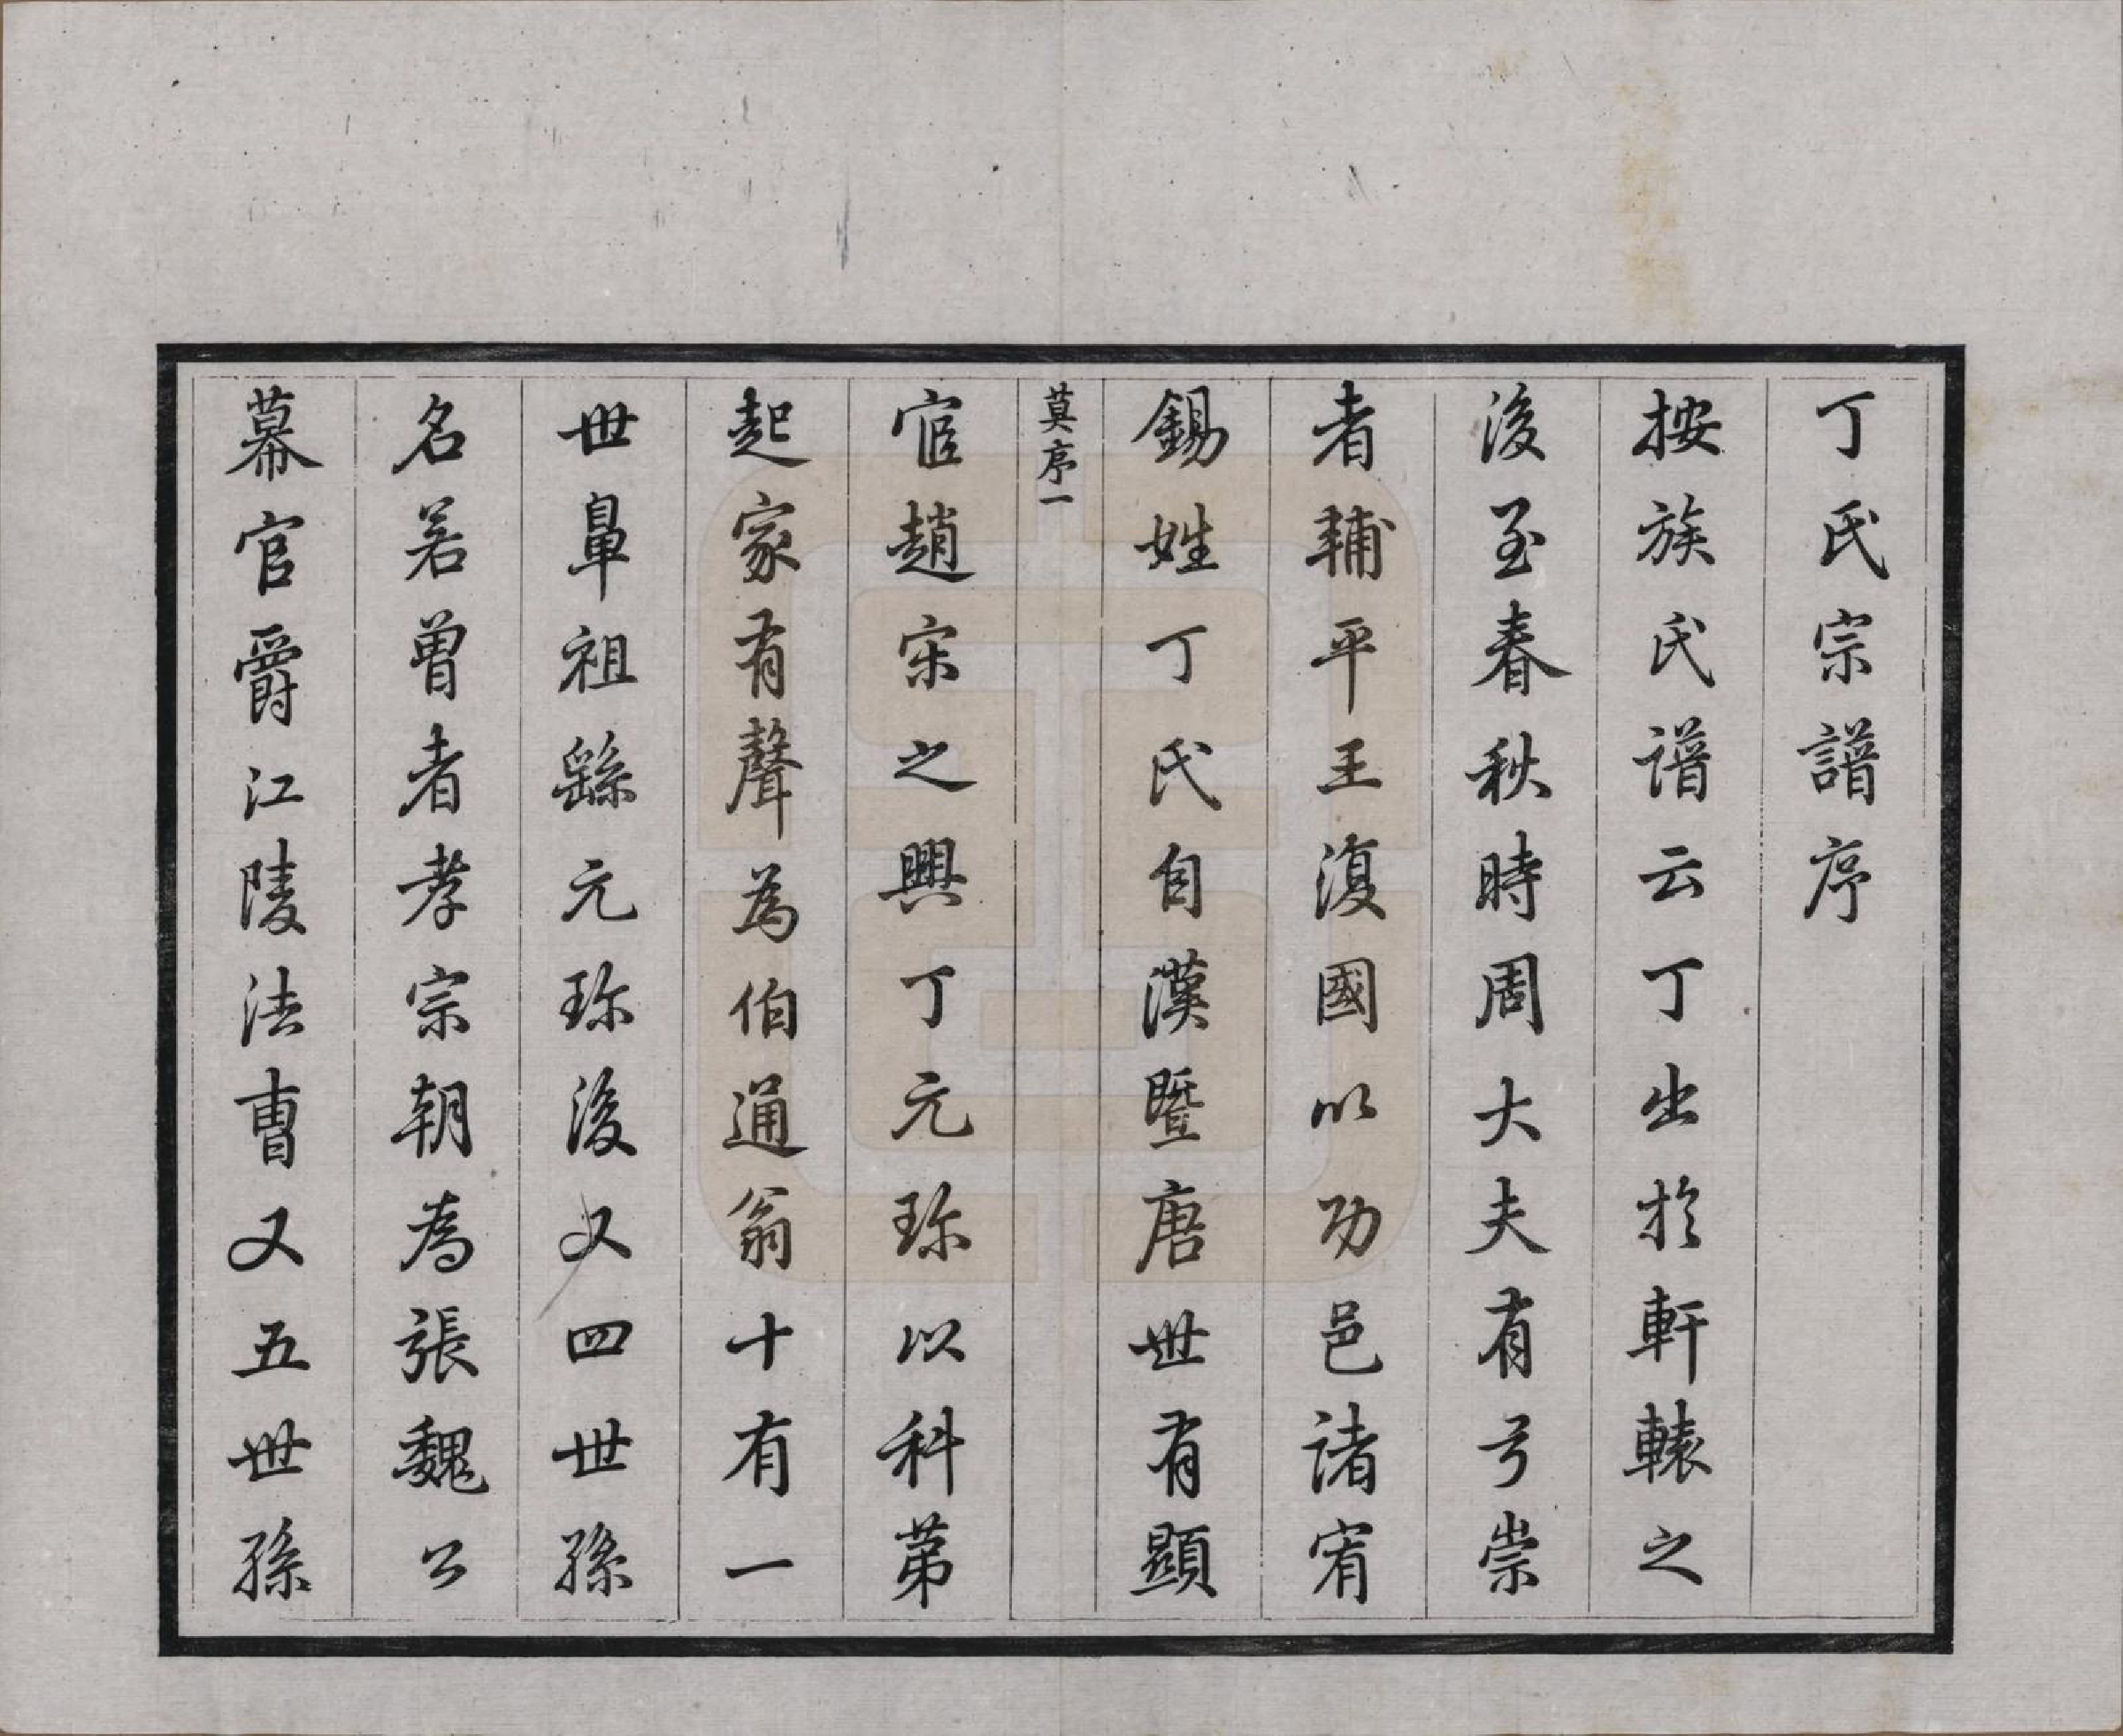 丁氏宗譜序
按族氏譜云丁出於軒轅之
後至春秋時周大夫有丂崇
者輔平王復國以功邑諸宥
錫姓丁氏自漢暨唐世有顯
莫序一
宦趙宋之興丁元珎以科第
起家有聲為伯通翁十有一
世鼻祖繇元珎後又四世孫
名若曾者孝宗朝為張魏公
幕官爵江陵法曹又五世孫